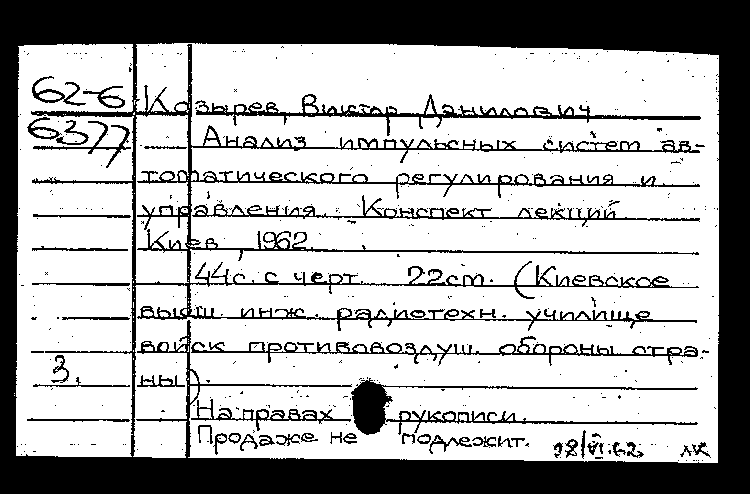 62-6 Козырев, Виктор Данилович
6377 Анализ импульсных систем ав-
томатического регулирования и
управления. Конспект лекций
Киев, 1962.
44с. с черт. 22см. (Киевское
высш. инж. радиотехн. училище
войск противовоздуш. обороны стра-
3. ны).
На правах рукописи.
Продаже не подлежит. 28/VI.62 лк